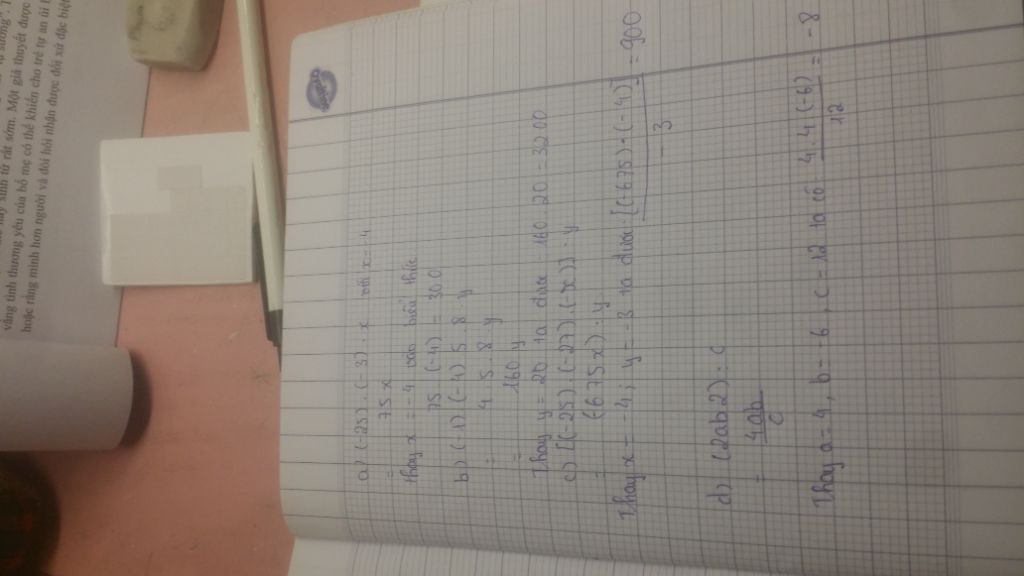 vãng tình thương yêu của bố mẹ có thể khiến cho trẻ tự an ủi
hoặc rằng mình hơn người và đòi hỏi nhận được đối xử đặc biệt
a) (-25) . (-3) . x với x = -4
= 75 x
Thay x = -4 vào biểu thức
75 . (-4) = 300
b) (-1) . (-4) 5 8 y
= 4 . 5 . 8 y
= 160 y
Thay y = 20 ta được 160 . 20 = 3200
c) [(-25) . (-27) . (-x)] : y
= (-675.x) : y
Thay x = -4 ; y = -3 ta được : [(-675) . (-4)] / -3 = 900
d) (2ab2) : c
= 4ab / c
Thay a = 4, b = -6, c = 12 ta có 4.4 (-6) / 12 = -8